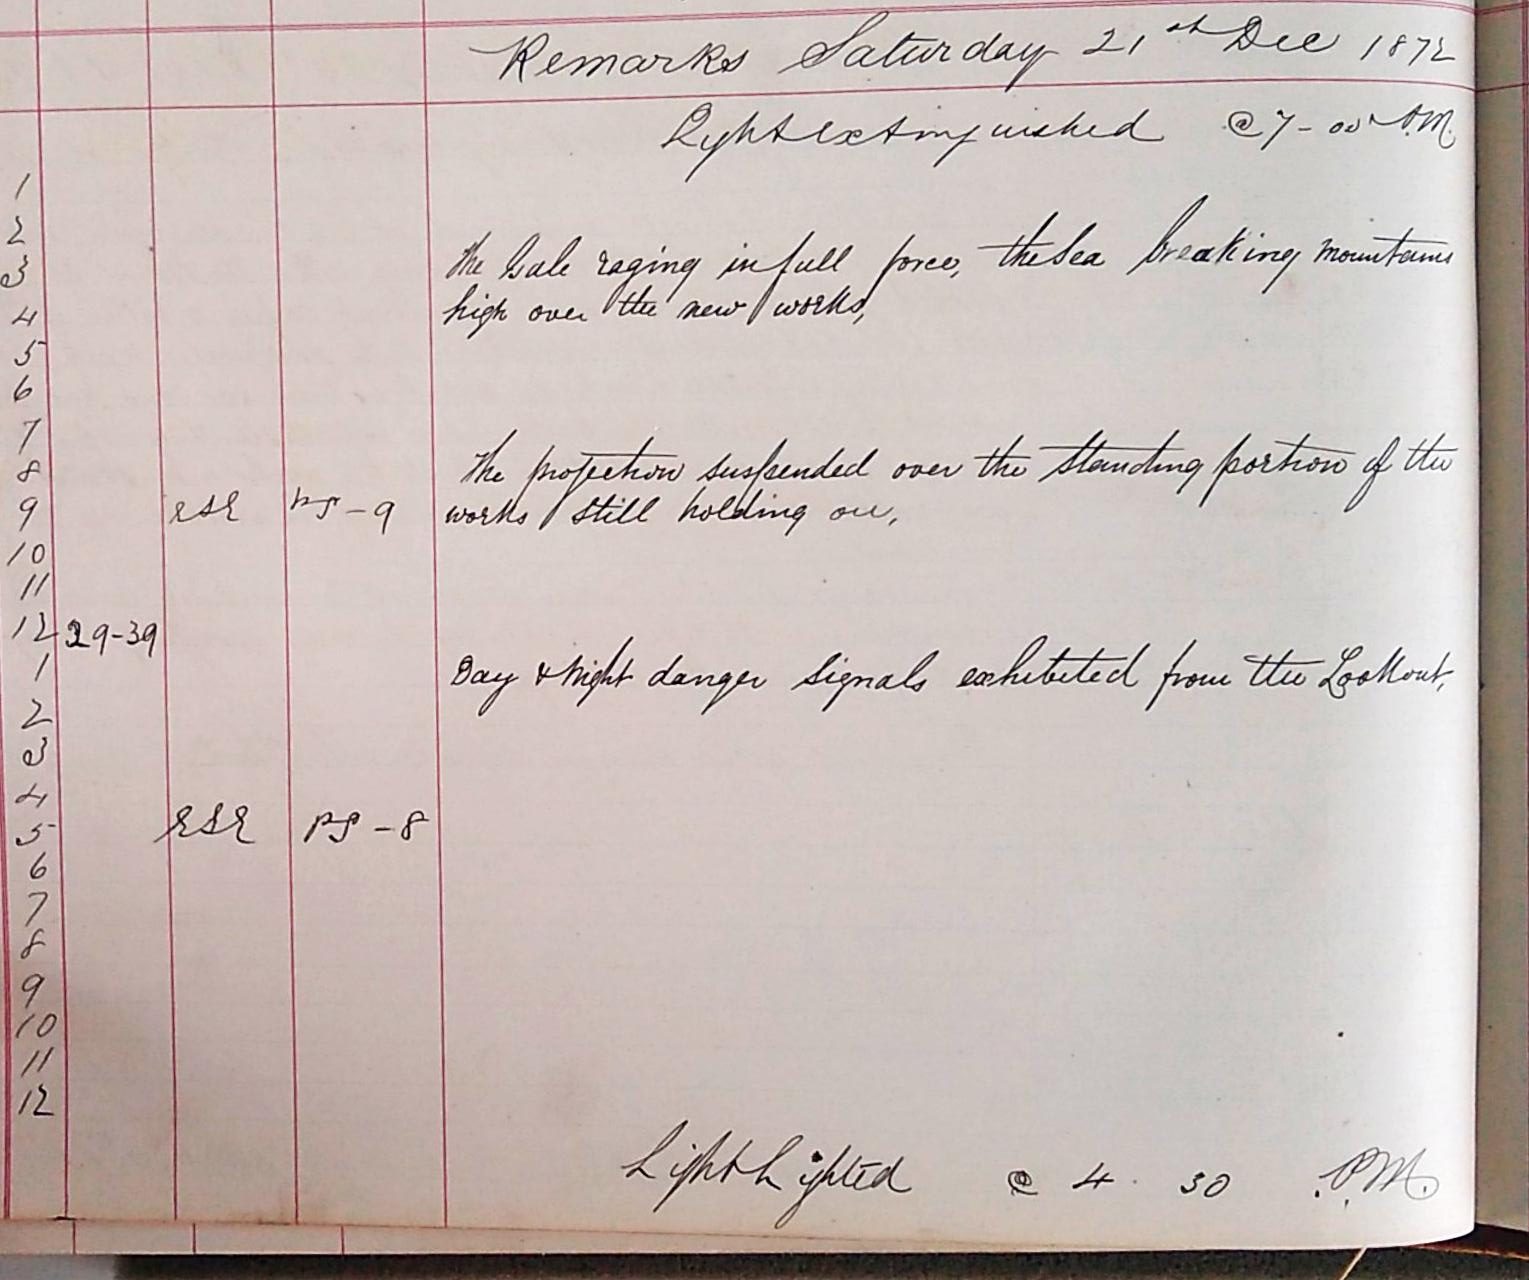 Remarks Saturday 21st Dec 1872
Light extinguished @ 7-00 A.M.
1
2
The Gale raging in full force, the Sea breaking mountains
3
high over the new works,
4
5
6
7
8
The projection suspended over the standing portion of the
9 ESE PS-9 works still holding on,
10
11
12 29-39
1
Day & Night danger Signals exhibited from the Lookout,
2
3
4
5 ESE PS-8
6
7
8
9
10
11
12
Light Lighted @ 4.30 P.M.